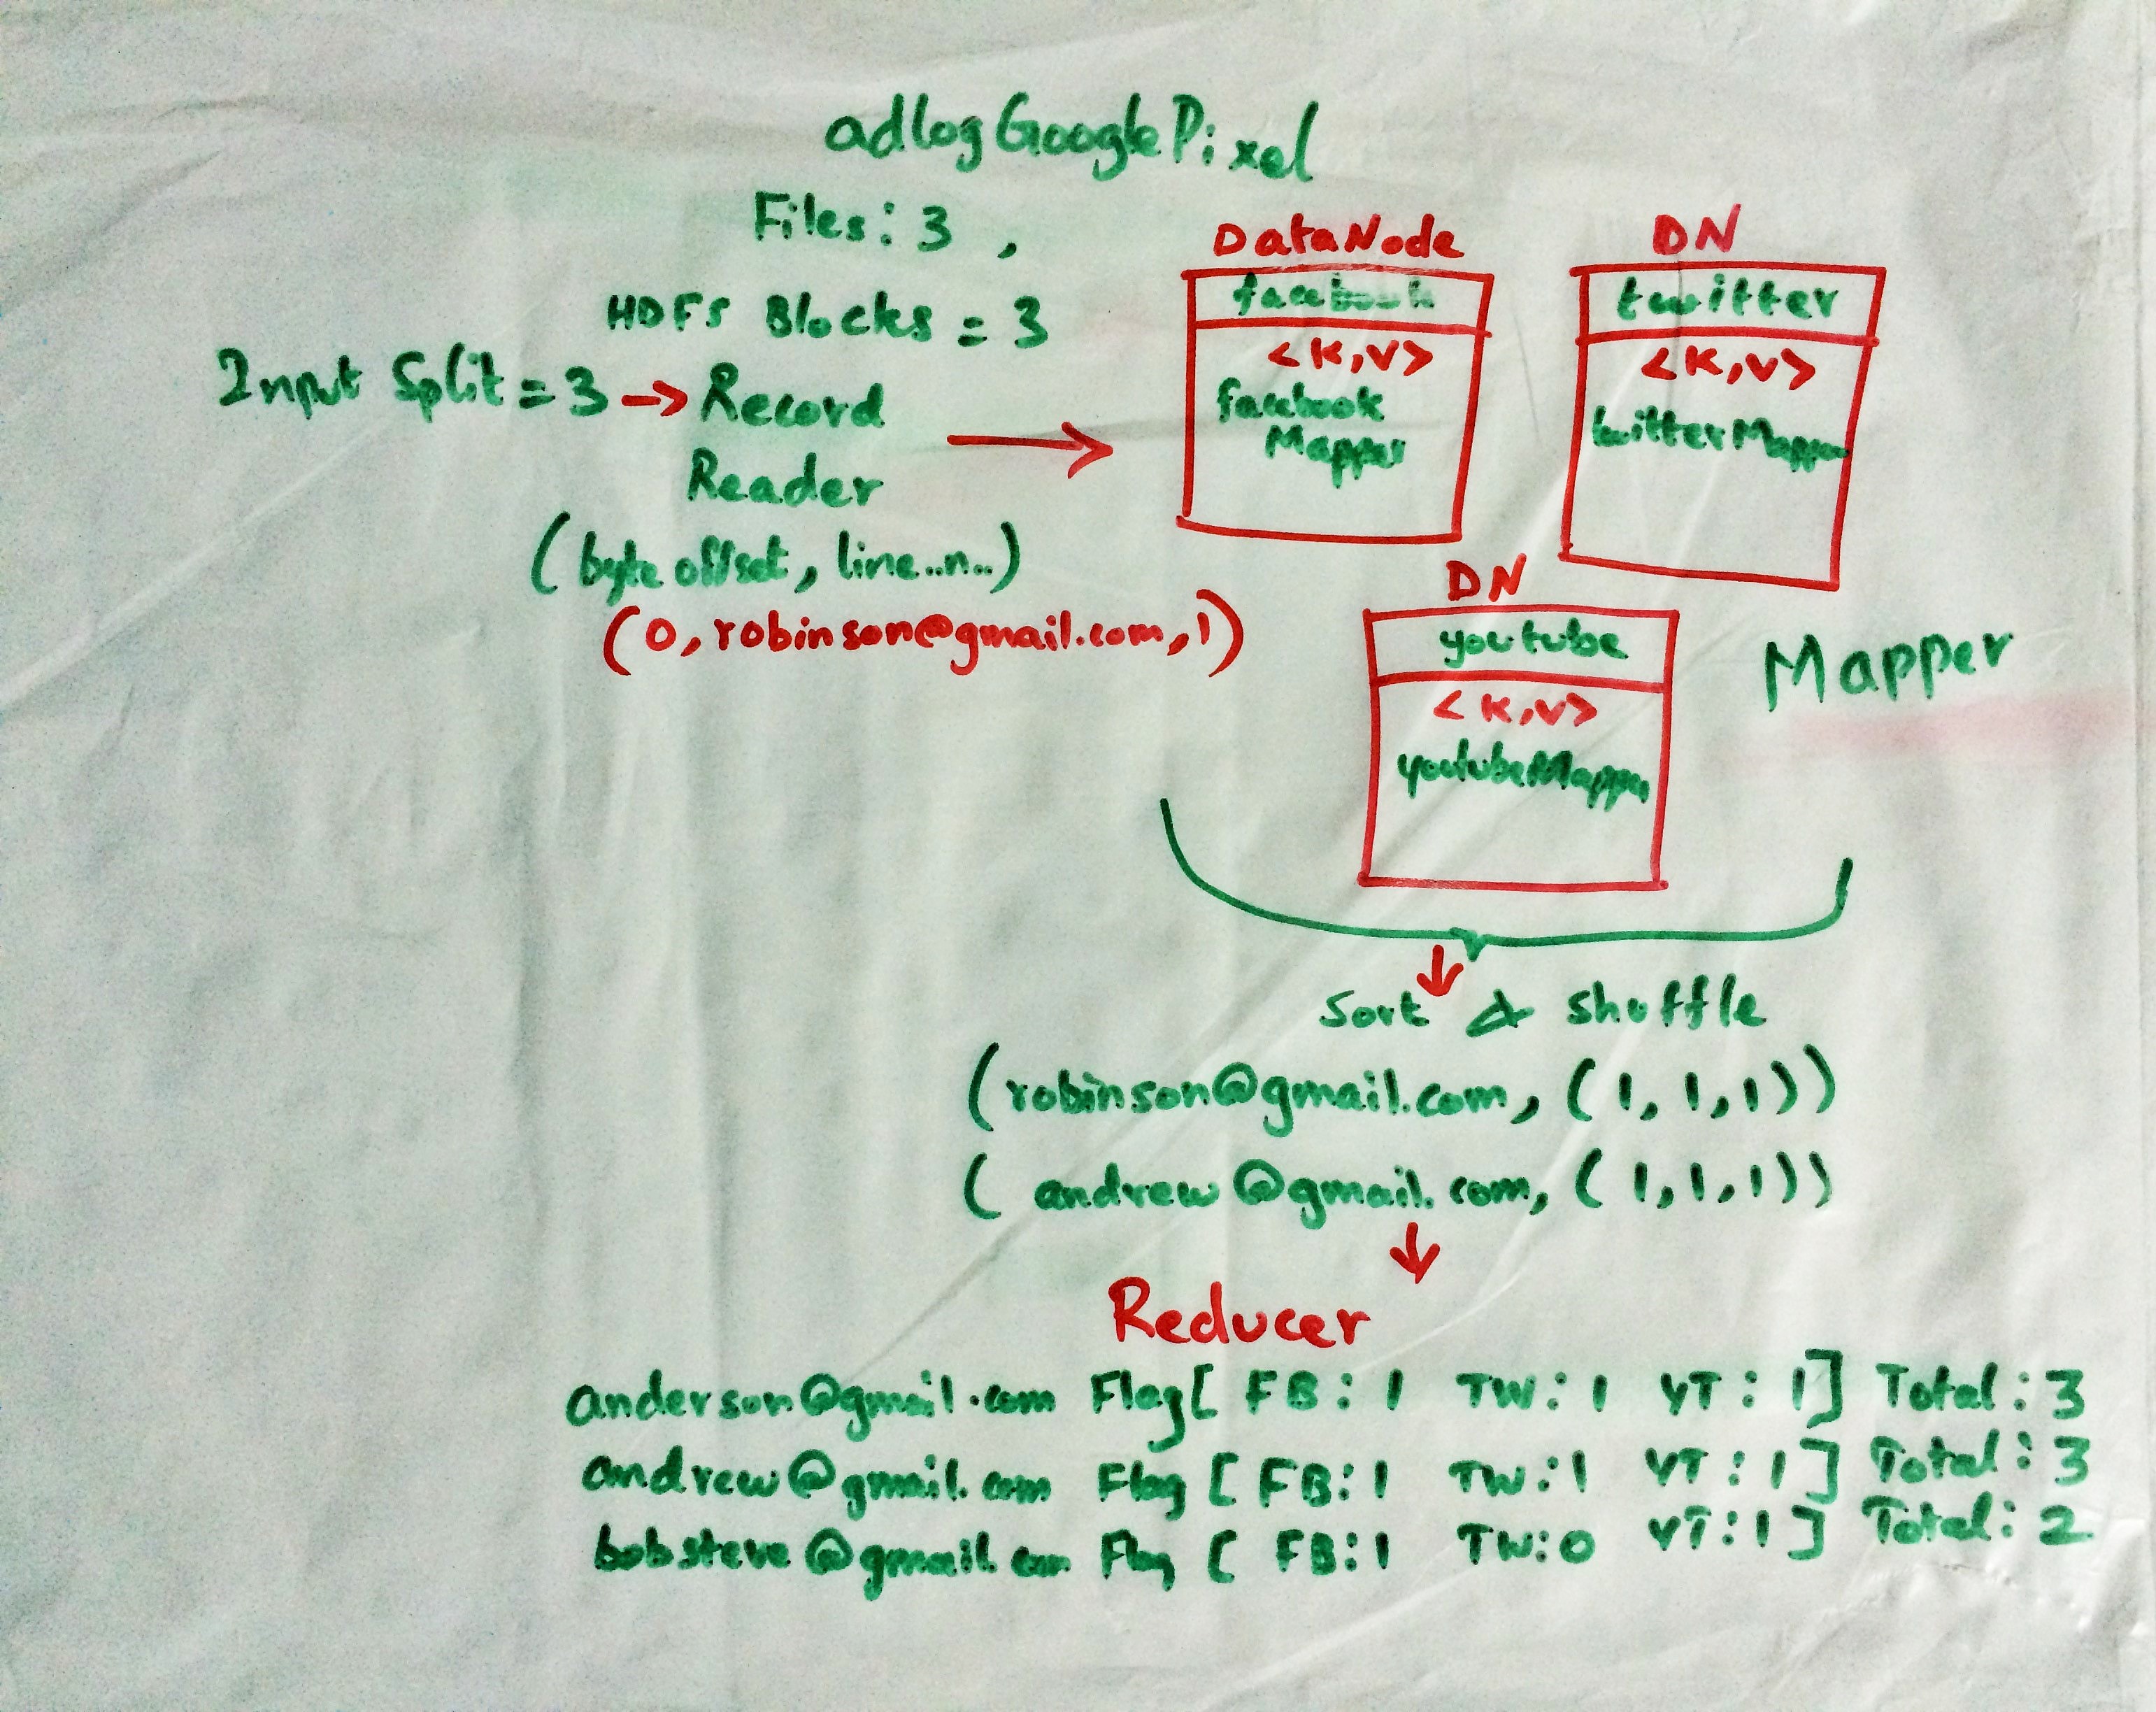 adlogGooglePixel
Files: 3 ,
HDFS Blocks = 3
Input Split = 3 → Record
Reader
(byte offset, line..n..)
(0, robinson@gmail.com, 1)
DataNode
facebook
<K,V>
facebook
Mapper
DN
twitter
<K,V>
twitterMapper
DN
youtube
<K,V>
youtubeMapper
Mapper
Sort & shuffle
(robinson@gmail.com, (1, 1, 1))
(andrew@gmail.com, (1, 1, 1))
Reducer
anderson@gmail.com Flag[ FB: 1 TW: 1 YT: 1] Total: 3
andrew@gmail.com Flag [ FB: 1 TW: 1 YT: 1] Total: 3
bobsteve@gmail.com Flag [ FB: 1 TW: 0 YT: 1] Total: 2